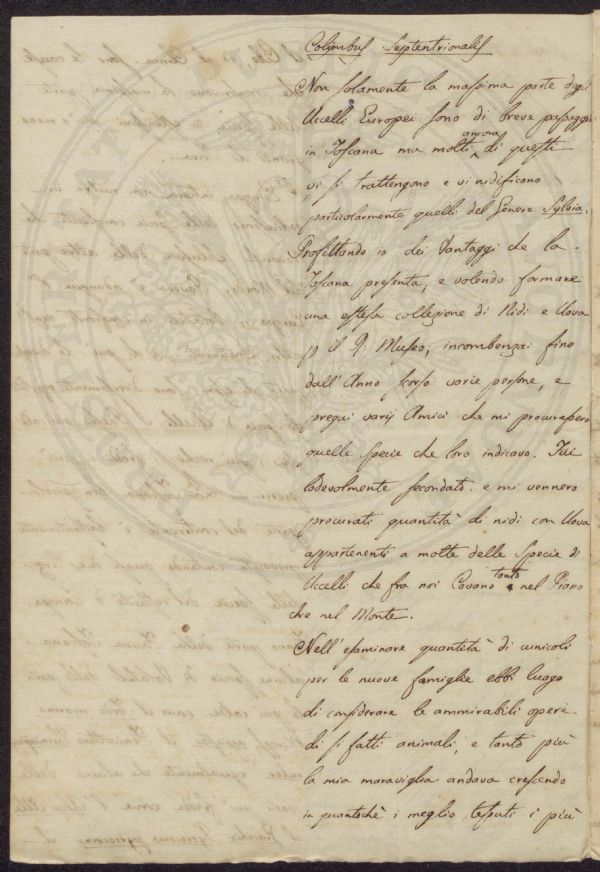 Colimbus Septentrionalis
Non solamente la massima parte degli
Uccelli Europei sono di breve passaggio
in Toscana ma molti ancora di questi
vi si trattengono e vi nidificano
particolarmente quelli del Genere Sylvia.
Profittando io dei Vantaggi che la
Toscana presenta, e volendo formare
una estesa collezione di Nidi e Uova
p il R. Museo, incombenzai fino
dall' Anno scorso varie persone, e
pregai varij Amici che mi procurassero
quelle specie che loro indicavo. Fui
lodevolmente secondato: e mi vennero
procurati quantità di nidi con Uova
appartenenti a molte delle Specie di
Uccelli che fra noi Covano tanto nel Piano
che nel Monte.
Nell' esaminare quantità di cunicoli
per le nuove famiglie ebbi luogo
di considerare le ammirabili opere
di sì fatti animali, e tanto più
la mia maraviglia andava crescendo
in quantochè i meglio tessuti i più